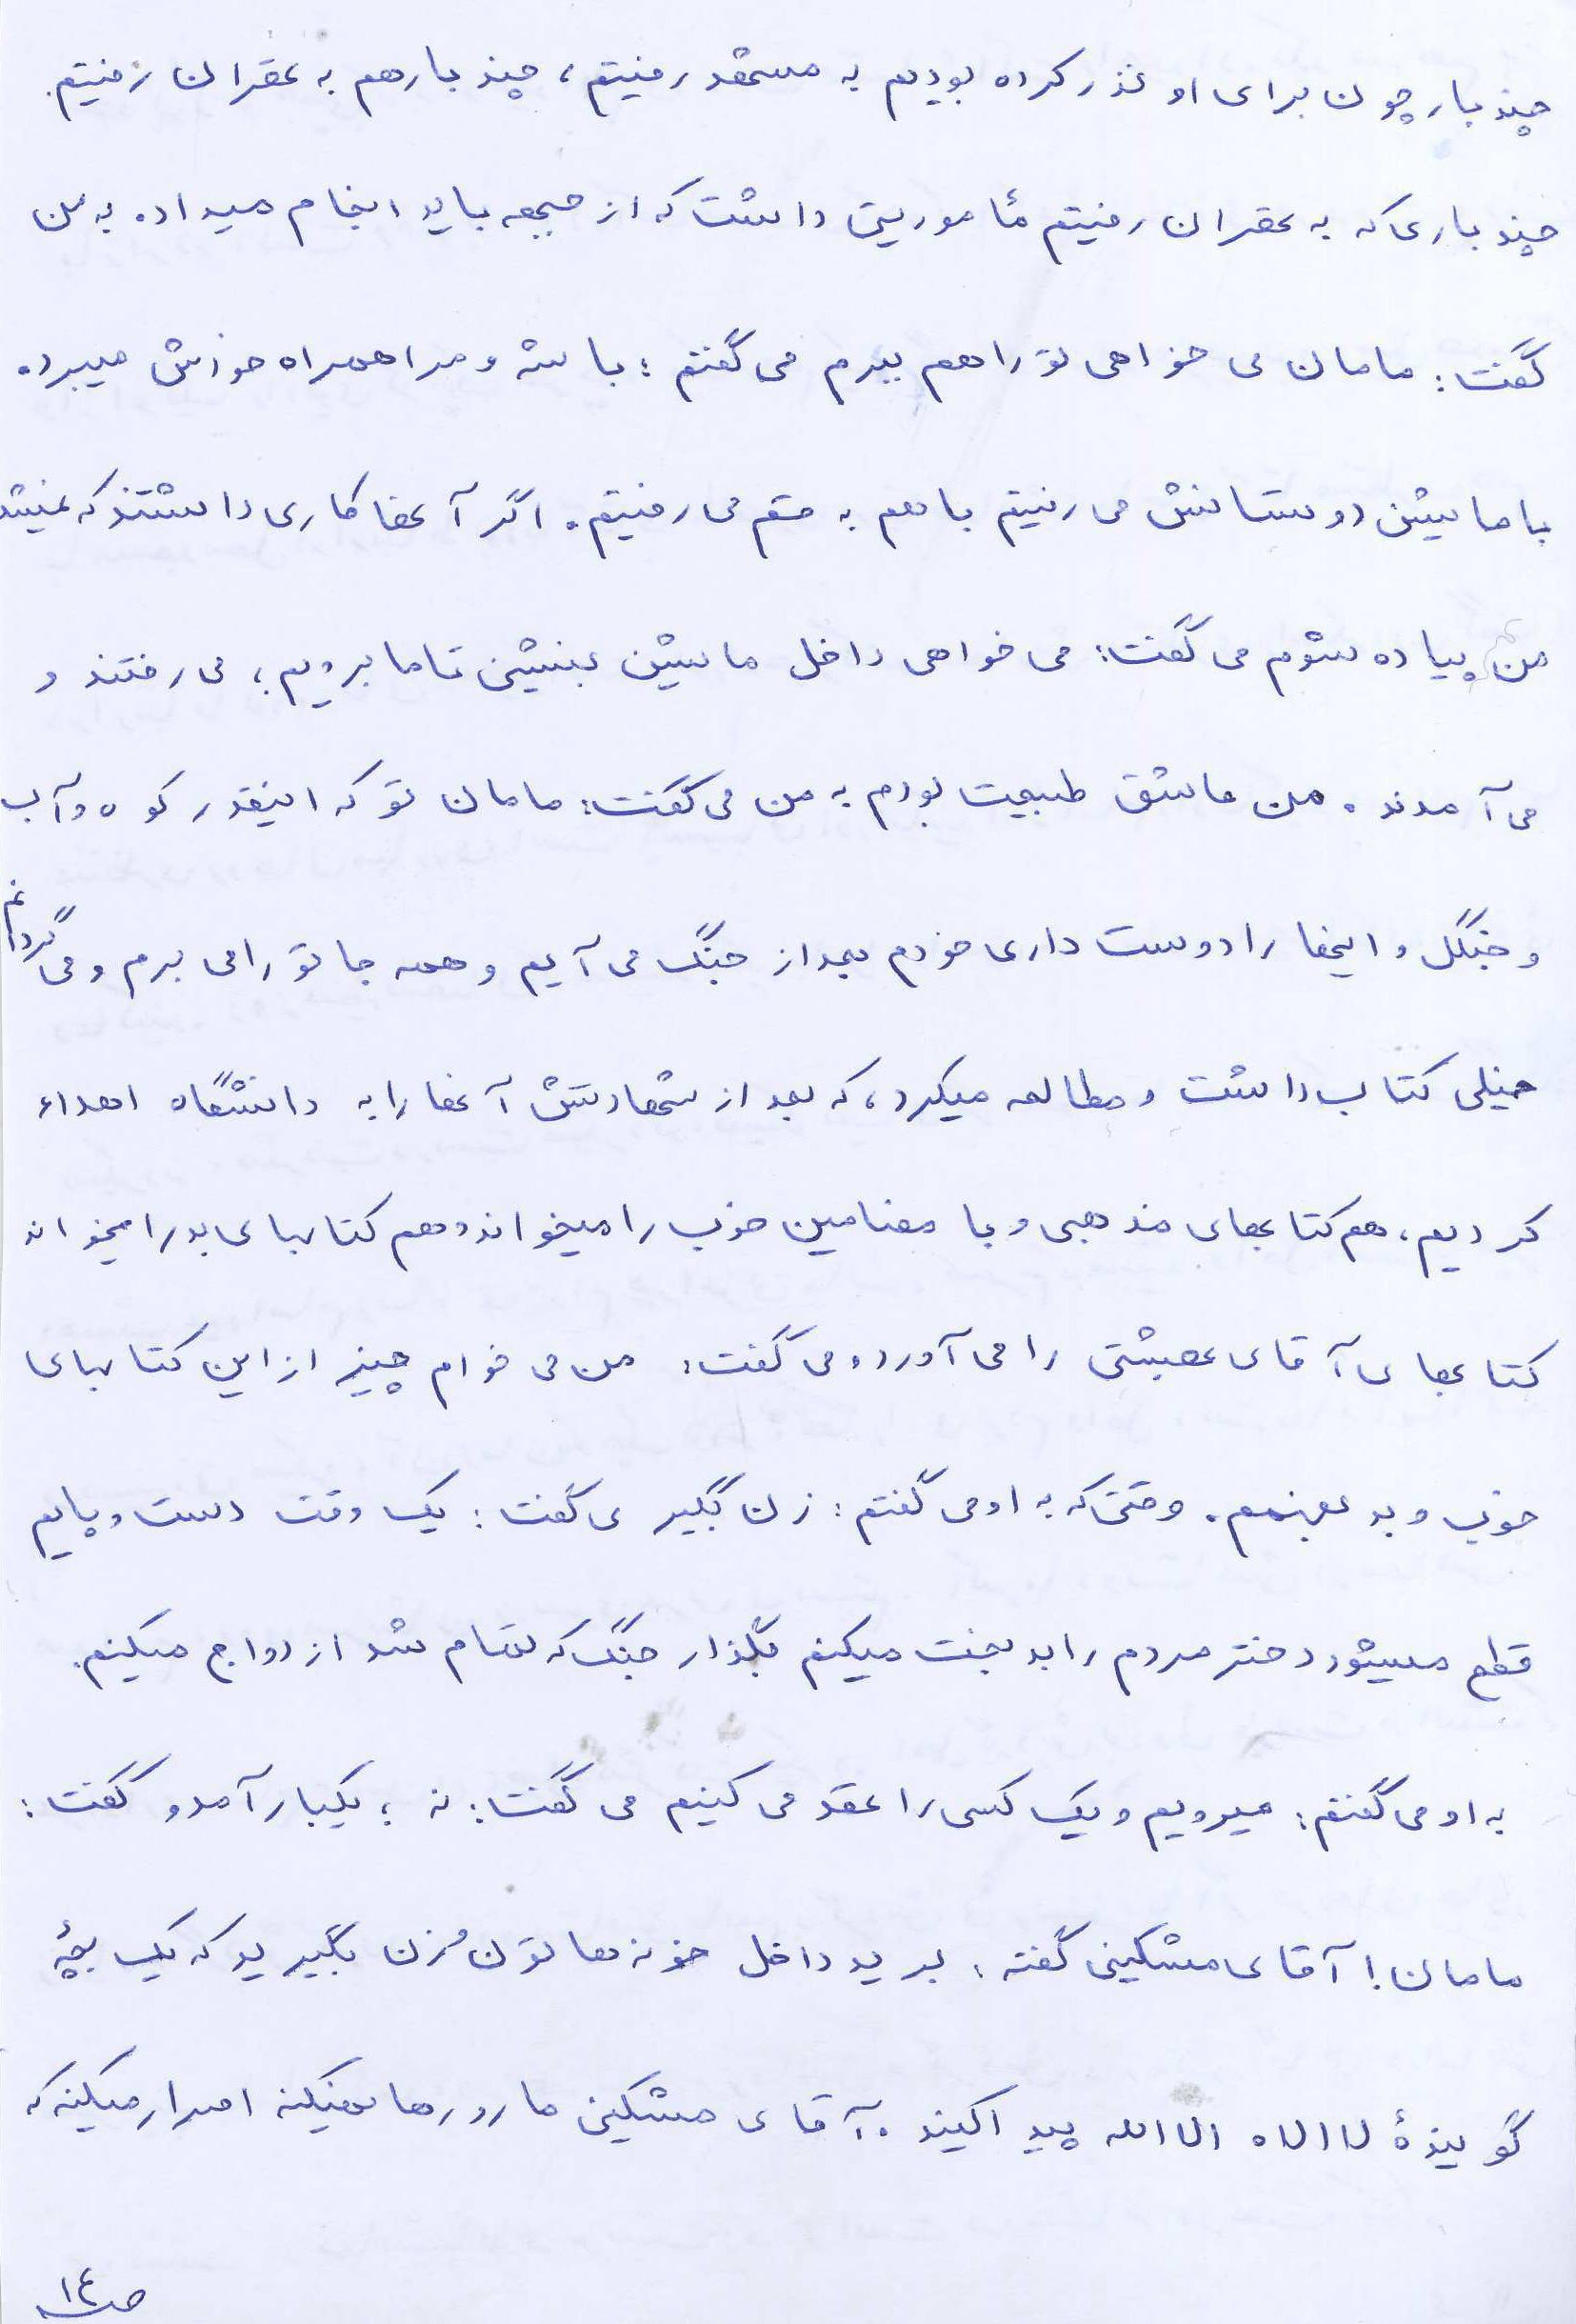 چند بار چون برای او نذر کرده بودیم به مشهد رفتیم، چند بار هم به تهران رفتیم.
چند باری که به تهران رفتیم مأموریتی داشت که از جبهه باید انجام میداد. به من
گفت: مامان می خواهی تو را هم ببرم می گفتم: باشه و مرا همراه خودش میبرد.
با ماشین دوستانش می رفتیم با هم به قم می رفتیم. اگر آنها کاری داشتند که نمیشد
من پیاده شوم می گفت: می خواهی داخل ماشین بنشینی تا ما برویم؛ می رفتند و
می آمدند. من عاشق طبیعت بودم به من می گفت: مامان تو که اینقدر کوه و آب
و جنگل و اینها را دوست داری خودم بعد از جنگ می آیم و همه جا تو را می برم و می گردانم
خیلی کتاب داشت و مطالعه میکرد، که بعد از شهادتش آنها را به دانشگاه اهداء
کردیم، هم کتابهای مذهبی و با مضامین خوب را میخواند و هم کتابهای بد را میخواند
کتابهای آقای بهشتی را می آورد و می گفت: من می خوام چیز از این کتابهای
خوب و بد بفهمم. وقتی که به او می گفتم: زن بگیر می گفت: یک وقت دست و پایم
قطع میشود دختر مردم را بدبخت میکنم بگذار جنگ که تمام شد ازدواج میکنم.
به او می گفتم: میرویم و یک کسی را عقد می کنیم می گفت: نه؛ یکبار آمد و گفت:
مامان! آقای مشکینی گفته: برید داخل خونه هاتون زن بگیرید که یک بچهٔ
گویندهٔ لا اله الا الله پیدا کنید. آقای مشکینی ما رو رها نمیکنه اصرار میکنه که
ص ١٤